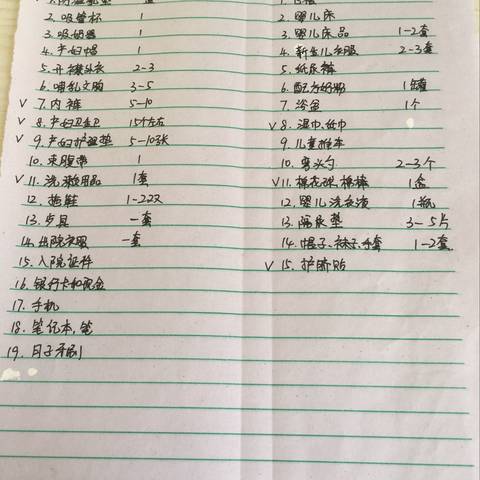 2. 吸管杯 1
3. 吸奶器 1
4. 产妇帽 1
5. 开襟外衣 2-3
6. 哺乳文胸 3-5
√ 7. 内裤 5-10
√ 8. 产妇卫生巾 15个左右
√ 9. 产妇护理垫 5-10张
10. 束腹带 1
√ 11. 洗漱用品 1套
12. 拖鞋 1-2双
13. 餐具 一套
14. 出院衣服 一套
15. 入院证件
16. 银行卡和现金
17. 手机
18. 笔记本,笔
19. 月子牙刷
2. 婴儿床
3. 婴儿床品 1-2套
4. 新生儿衣服 2-3套
5. 纸尿裤
6. 配方奶粉 1罐
7. 浴盆 1个
√ 8. 湿巾.纸巾
9. 儿童推车
10. 弯头勺 2-3个
√ 11. 棉花球.棉棒 1盒
12. 婴儿洗衣液 1瓶
13. 隔尿垫 3-5片
14. 帽子.袜子.手套 1-2套
√ 15. 护脐贴